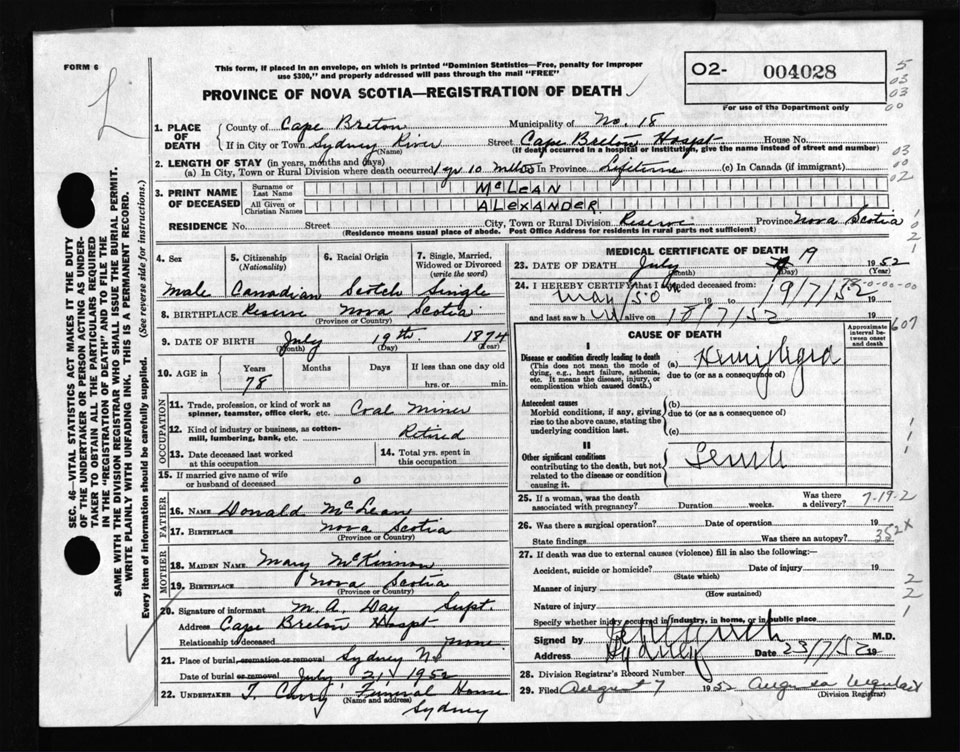 FORM 6
This form, if placed in an envelope, on which is printed "Dominion Statistics—Free, penalty for improper
use $300," and properly addressed will pass through the mail "FREE"
PROVINCE OF NOVA SCOTIA—REGISTRATION OF DEATH
02- 004028
For use of the Department only
SEC. 46—VITAL STATISTICS ACT MAKES IT THE DUTY
OF THE UNDERTAKER OR PERSON ACTING AS UNDER-
TAKER TO OBTAIN ALL THE PARTICULARS REQUIRED
IN THE "REGISTRATION OF DEATH" AND TO FILE THE
SAME WITH THE DIVISION REGISTRAR WHO SHALL ISSUE THE BURIAL PERMIT.
WRITE PLAINLY WITH UNFADING INK. THIS IS A PERMANENT RECORD.
Every item of information should be carefully supplied. (See reverse side for instructions.)
1. PLACE OF DEATH
County of Cape Breton Municipality of No. 18
If in City or Town Sydney River Street Cape Breton Hospt House No.
(Name) (If death occurred in a hospital or institution, give the name instead of street and number)
2. LENGTH OF STAY (in years, months and days)
(a) In City, Town or Rural Division where death occurred 1 yr 10 mths (b) In Province Lifetime (c) In Canada (if immigrant)
3. PRINT NAME OF DECEASED
Surname or Last Name McLEAN
All Given or Christian Names ALEXANDER
RESIDENCE No. Street City, Town or Rural Division Reserve Province Nova Scotia
(Residence means usual place of abode. Post Office Address for residents in rural parts not sufficient)
4. Sex Male
5. Citizenship (Nationality) Canadian
6. Racial Origin Scotch
7. Single, Married, Widowed or Divorced (write the word) Single
8. BIRTHPLACE Reserve Nova Scotia
(Province or Country)
9. DATE OF BIRTH July 19th 1874
(Month) (Day) (Year)
10. AGE in Years 78 Months Days If less than one day old
hrs. or min.
OCCUPATION
11. Trade, profession, or kind of work as spinner, teamster, office clerk, etc. Coal Miner
12. Kind of industry or business, as cotton-mill, lumbering, bank, etc. Retired
13. Date deceased last worked at this occupation
14. Total yrs. spent in this occupation
15. If married give name of wife or husband of deceased o
FATHER
16. Name Donald McLean
17. Birthplace Nova Scotia
(Province or Country)
MOTHER
18. MAIDEN NAME Mary McKinnon
19. BIRTHPLACE Nova Scotia
(Province or Country)
20. Signature of informant M. A. Day Supt.
Address Cape Breton Hospt
Relationship to deceased none
21. Place of burial, cremation or removal Sydney NS
Date of burial or removal July 21, 1952
22. UNDERTAKER T. Curry Funeral Home
(Name and address) Sydney
MEDICAL CERTIFICATE OF DEATH
23. DATE OF DEATH July 19 1952
(Month) (Day) (Year)
24. I HEREBY CERTIFY that I attended deceased from:
May/50 19 to 19/7/52 19
and last saw h alive on 18/7/52 19
CAUSE OF DEATH
Approximate interval between onset and death
I
Disease or condition directly leading to death
(This does not mean the mode of dying, e.g., heart failure, asthenia, etc. It means the disease, injury, or complication which caused death.)
(a) Hemiplegia
due to (or as a consequence of)
Antecedent causes
Morbid conditions, if any, giving rise to the above cause, stating the underlying condition last.
(b)
due to (or as a consequence of)
(c)
II
Other significant conditions
contributing to the death, but not related to the disease or condition causing it.
25. If a woman, was the death associated with pregnancy? Duration weeks. Was there a delivery? 7-19-2
26. Was there a surgical operation? Date of operation 19
State findings Was there an autopsy? 352X
27. If death was due to external causes (violence) fill in also the following:—
Accident, suicide or homicide? Date of injury 19
(State which)
Manner of injury
(How sustained)
Nature of injury
Specify whether injury occurred in industry, in home, or in public place
Signed by M.D.
Address Sydney Date 23/7/52 19
28. Division Registrar's Record Number
29. Filed August 7 1952
(Division Registrar)